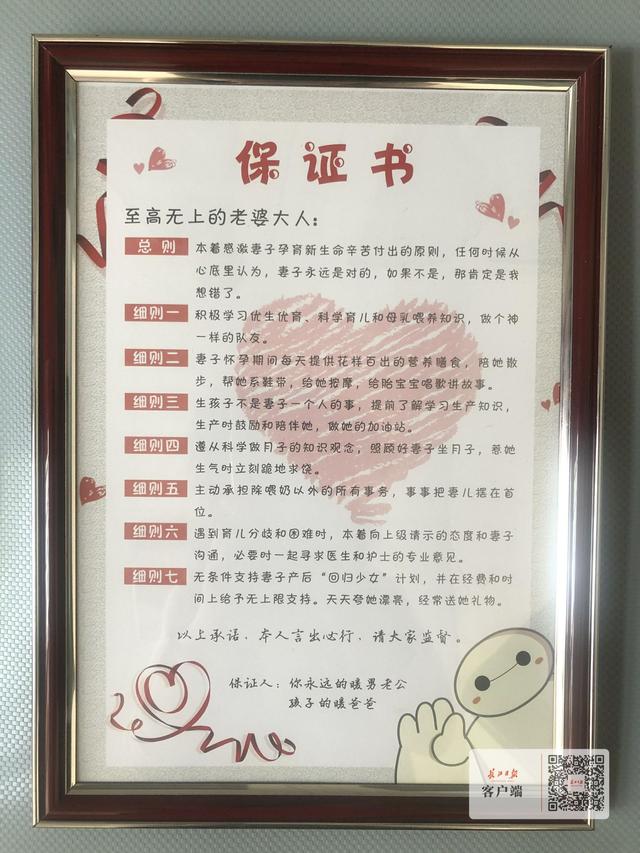 保证书
至高无上的老婆大人:
总则 本着感激妻子孕育新生命辛苦付出的原则，任何时候从
心底里认为，妻子永远是对的，如果不是，那肯定是我
想错了。
细则一 积极学习优生优育、科学育儿和母乳喂养知识，做个神
一样的队友。
细则二 妻子怀孕期间每天提供花样百出的营养膳食，陪她散
步，帮她系鞋带，给她按摩，给胎宝宝唱歌讲故事。
细则三 生孩子不是妻子一个人的事，提前了解学习生产知识，
生产时鼓励和陪伴她，做她的加油站。
细则四 遵从科学做月子的知识观念，照顾好妻子坐月子，惹她
生气时立刻跪地求饶。
细则五 主动承担除喂奶以外的所有事务，事事把妻儿摆在首
位。
细则六 遇到育儿分歧和困难时，本着向上级请示的态度和妻子
沟通，必要时一起寻求医生和护士的专业意见。
细则七 无条件支持妻子产后“回归少女”计划，并在经费和时
间上给予无上限支持。天天夸她漂亮，经常送她礼物。
以上承诺，本人言出必行，请大家监督。
保证人：你永远的暖男老公
孩子的暖爸爸
长江日报
客户端